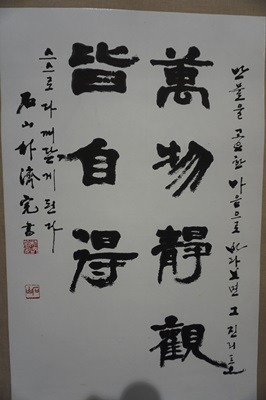 만물을 고요한 마음으로 바라보면 그 진리를
萬物靜觀
皆自得
스스로 다 깨닫게 된다
石山 朴濟完 書